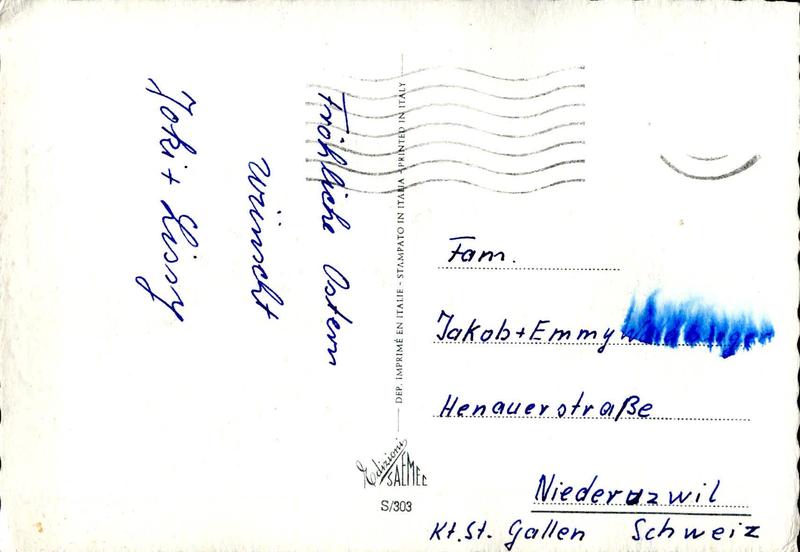 Fröhliche Ostern
wünscht
Joki + Lissy
DEP. IMPRIMÉ EN ITALIE - STAMPATO IN ITALIA - PRINTED IN ITALY
Edizioni
SAEMEC
S/303
Fam.
Jakob + Emmy
Henauerstraße
Niederuzwil
Kt. St. Gallen Schweiz